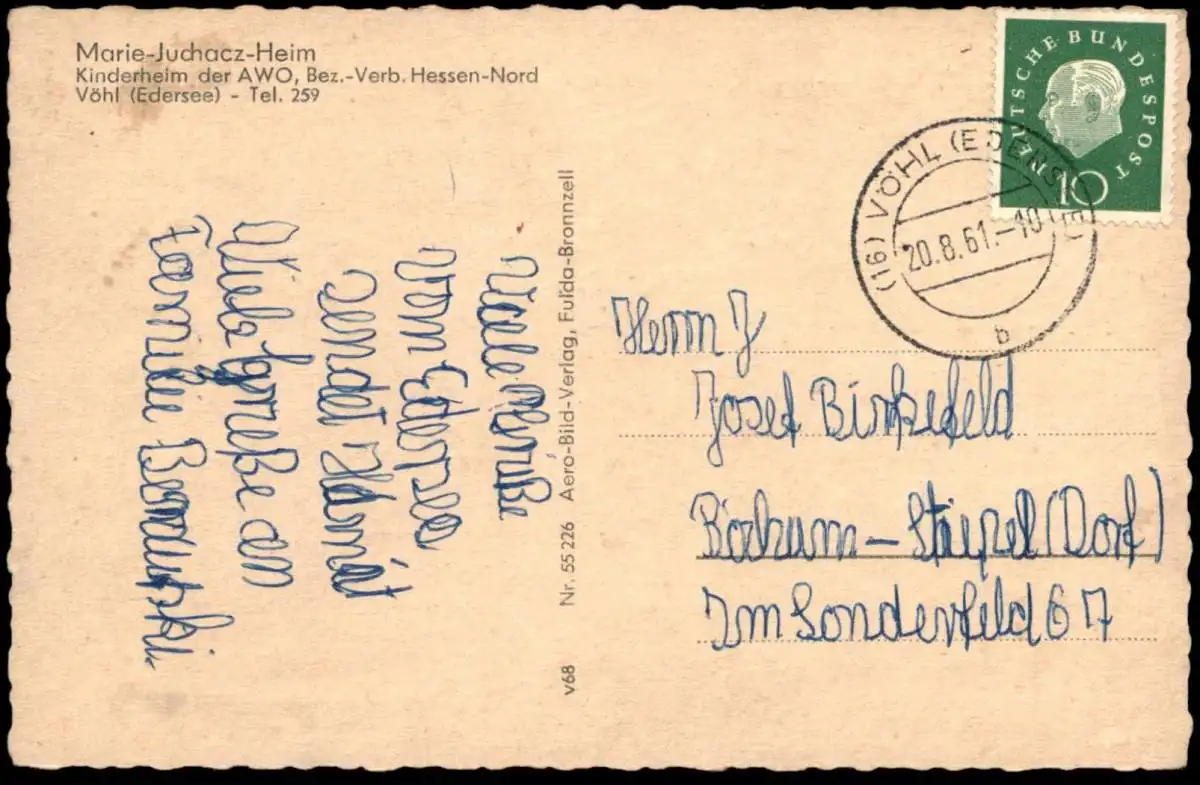 Marie-Juchacz-Heim
Kinderheim der AWO, Bez.-Verb. Hessen-Nord
Vöhl (Edersee) - Tel. 259
Viele Grüße
vom Edersee
sendet
Viele Grüße an
Familie
Nr. 55226 Aero-Bild-Verlag, Fulda-Bronnzell
v68
DEUTSCHE BUNDESPOST
10
(16) VÖHL (EDERSEE)
20.8.61.-10
b
Herrn J
Josef Birkefeld
Bochum - Stiepel (Dorf)
Im Sonderfeld 67